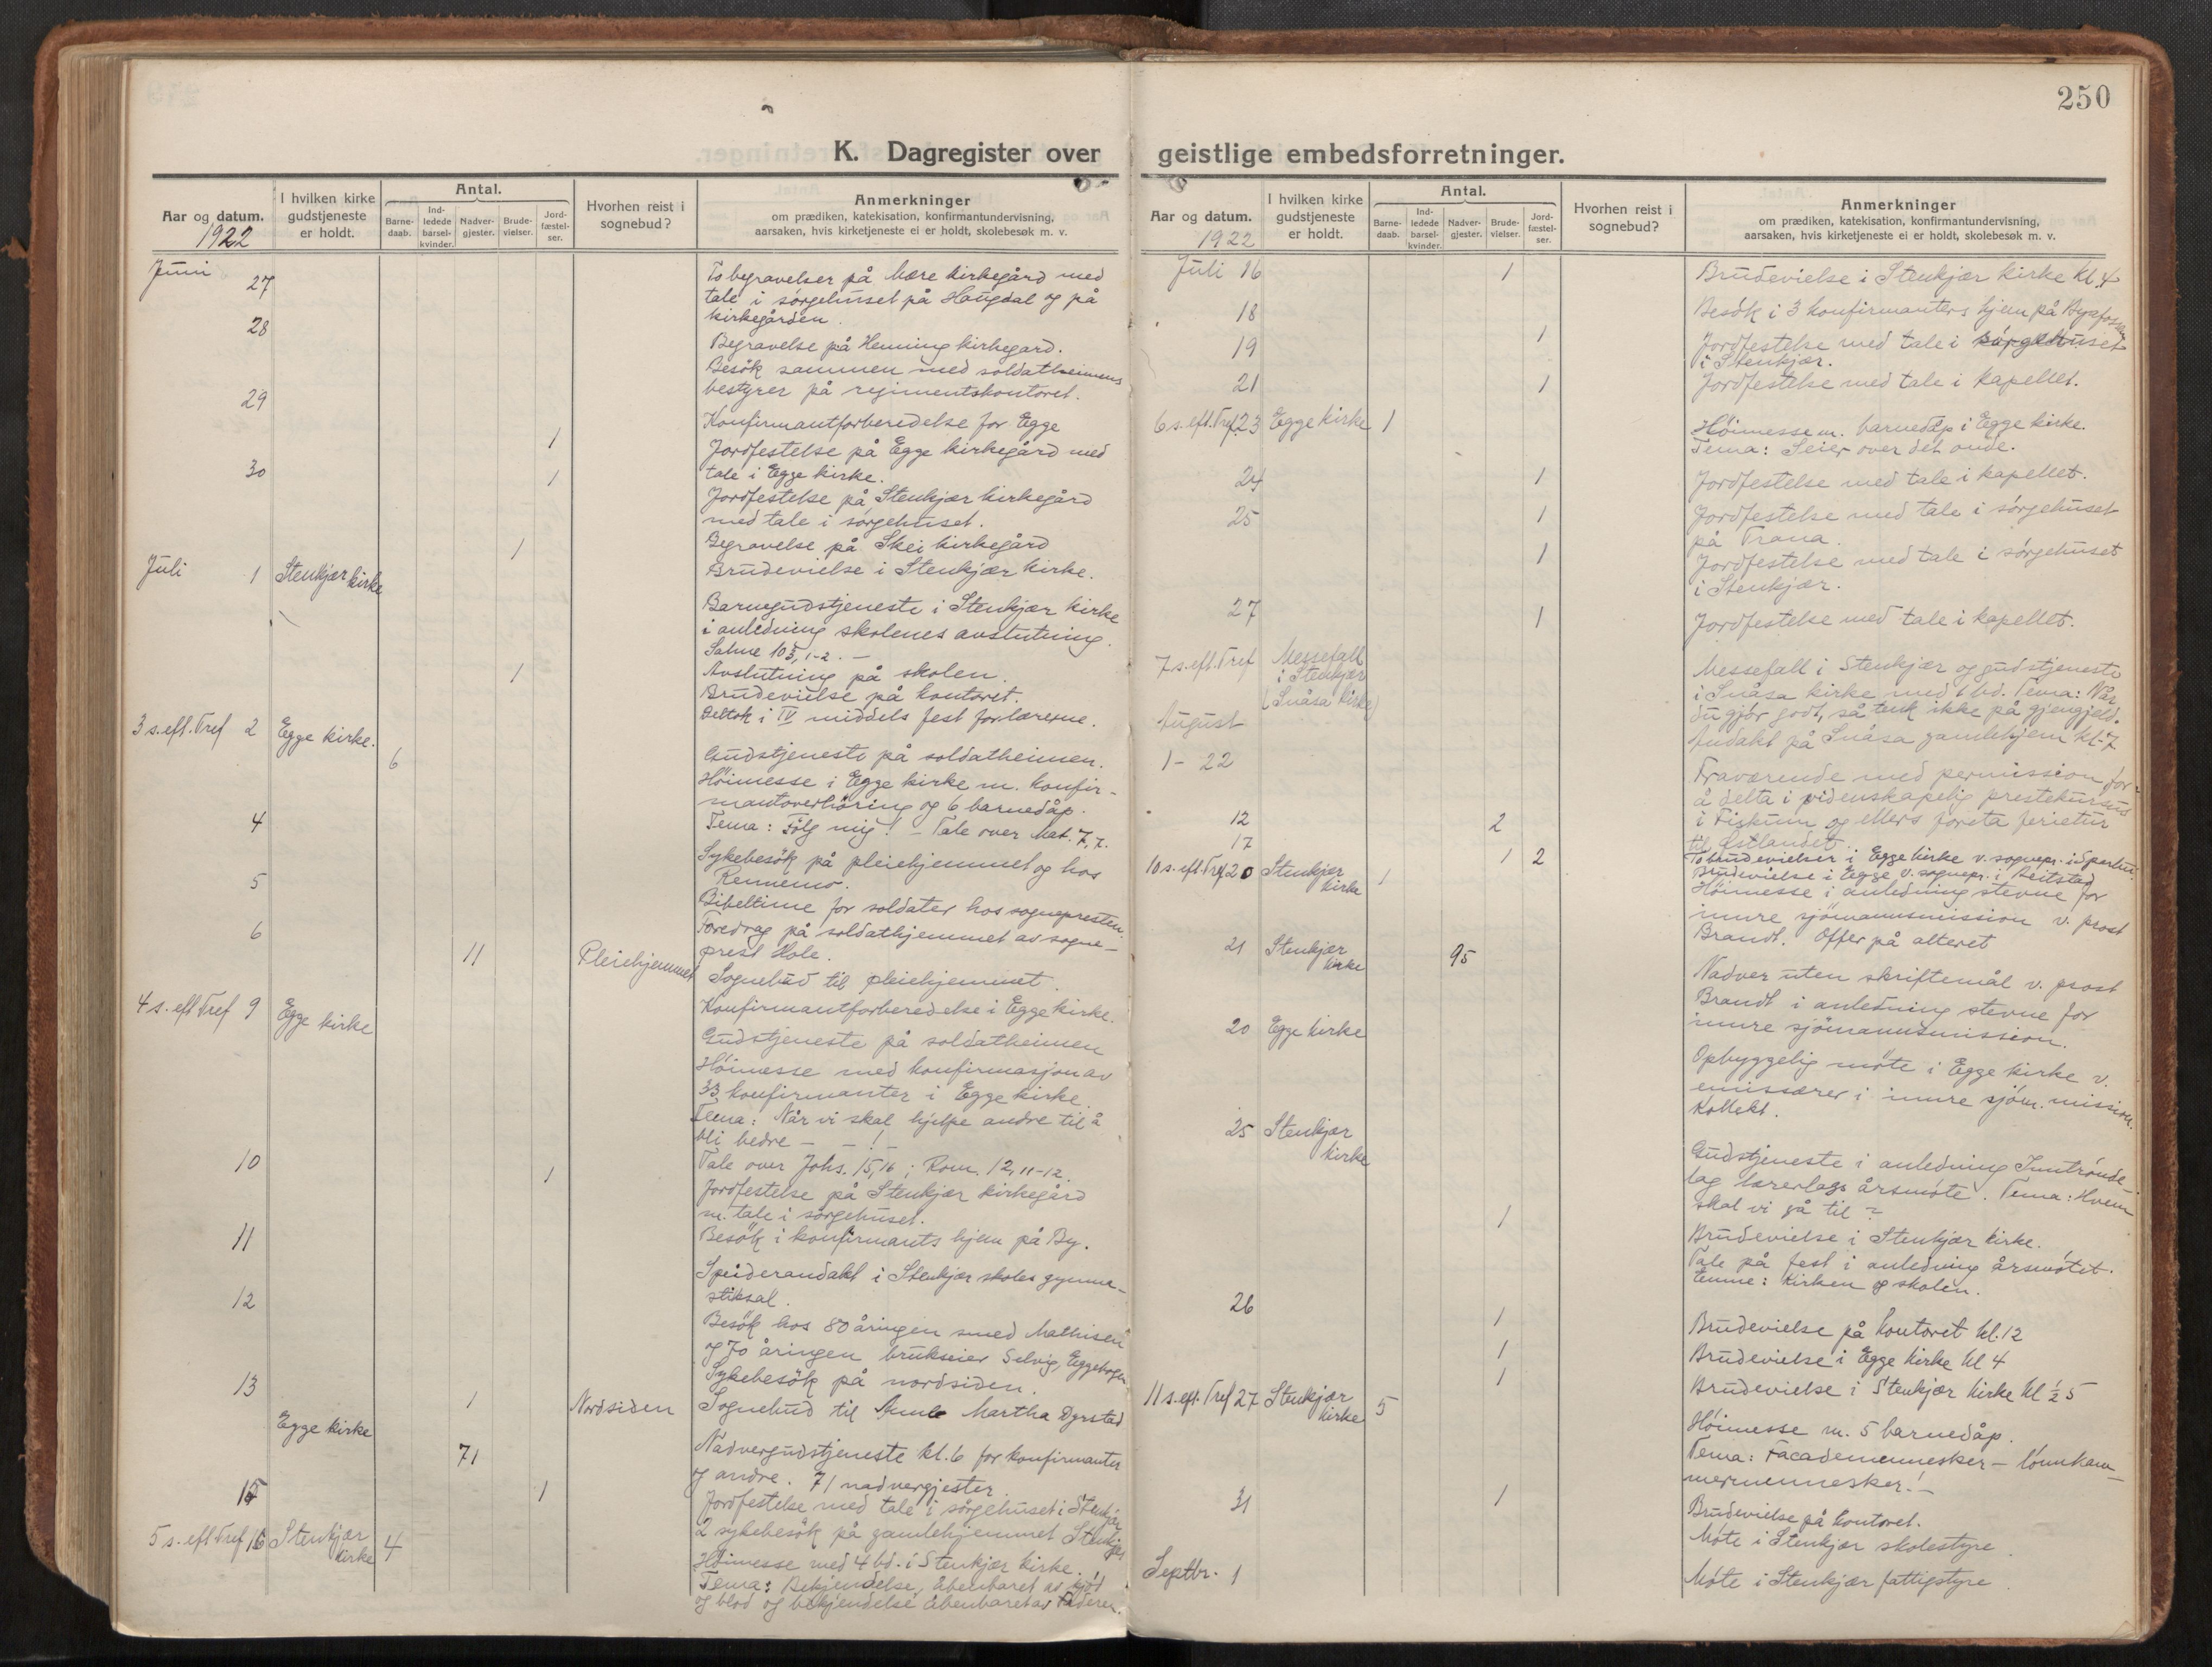 250
K. Dagregister over geistlige embedsforretninger.
Aar og datum.
1922
I hvilken kirke gudstjeneste er holdt.
Antal.
Barne-daab.
Ind-ledede barsel-kvinder.
Nadver-gjester.
Brude-vielser.
Jord-fæstel-ser.
Hvorhen reist i sognebud?
Anmerkninger
om prædiken, katekisation, konfirmantundervisning,
aarsaken, hvis kirketjeneste ei er holdt, skolebesøk m. v.
Juni
27 To begravelser på Mære kirkegård med
tale i sørgehuset på Haugdal og på
kirkegården.
28
Begravelse på Henning kirkegard.
Besök sammen med soldatheimens
bestyrer på regimentskontoret.
29
Konfirmantforberedelse for Egge
1 Jordfestelse på Egge kirkegård med
tale i Egge kirke.
30 1
Jordfestelse på Stenkjær kirkegård
med tale i sørgehuset.
Begravelse på Skei kirkegård
1 Brudevielse i Stenkjær kirke.
Juli 1 Stenkjær kirke
Barnegudstjeneste i Stenkjær kirke
i anledning skolenes avslutning.
Salme 103, 1-2. –
Avslutning på skolen.
1 Brudevielse på kontoret.
Deltok i IV middels fest for lærerne.
3 s. eft. Tref 2 Egge kirke. 6
Gudstjeneste på soldatheimen.
Höimesse i Egge kirke m. konfir-
mantoverhöring og 6 barnedåp.
Tema: Fölg mig! – Tale over Mat. 7,7.
4
Sykebesök på pleiehjemmet og hos
Rennemo.
5
Bibeltime for soldater hos sognepresten.
6
Foredrag på soldathjemmet av sogne-
prest Hole.
11 Pleiehjemmet Sognebud til pleiehjemmet.
Konfirmantforberedelse i Egge kirke.
4 s. eft Tref 9 Egge kirke
Gudstjeneste på soldatheimen
Höimesse med konfirmasjon av
33 konfirmanter i Egge kirke.
Tema: Når vi skal hjelpe andre til å
bli bedre – – !
Tale over Johs. 15,16; Rom. 12, 11-12.
10 1
Jordfestelse på Stenkjær kirkegård
m. tale i sørgehuset.
Besök i konfirmants hjem på By.
11
Speiderandakt i Stenkjær skoles gymna-
stiksal.
12
Besök hos 80 åringen smed Mathisen
og 70 åringen brukseier Selvig, Eggebogen
Sykebesök på nordsiden.
13 1 Nordsiden Sognebud til Martha Dyrstad
Egge kirke 71
Nadvergudstjeneste kl. 6 for konfirmanter
og andre. 71 nadvergjester.
15 1
Jordfestelse med tale i sørgehuset i Stenkjær
2 sykebesök på gamlehjemmet Stenkjær
5 s. eft Tref 16 Stenkjær kirke 4
Höimesse med 4 bd. i Stenkjær kirke.
Tema: Bekjendelse, åbenbaret av kjöt
og blod og bekjendelse åbenbaret av Faderen.
Aar og datum.
1922
I hvilken kirke gudstjeneste er holdt.
Antal.
Barne-daab.
Ind-ledede barsel-kvinder.
Nadver-gjester.
Brude-vielser.
Jord-fæstel-ser.
Hvorhen reist i sognebud?
Anmerkninger
om prædiken, katekisation, konfirmantundervisning,
aarsaken, hvis kirketjeneste ei er holdt, skolebesøk m. v.
Juli 16 1 Brudevielse i Stenkjær kirke kl. 4
18 Besök i 3 konfirmanters hjem på Byafossen
19 1 Jordfestelse med tale i sørgehuset
i Stenkjær.
21 1 Jordfestelse med tale i kapellet.
6 s. eft. Tref. 23 Egge kirke 1 Höimesse m. barnedåp i Egge kirke.
Tema: Seier over det onde.
24 1 Jordfestelse med tale i kapellet.
25 1 Jordfestelse med tale i sørgehuset
på Trana.
1 Jordfestelse med tale i sørgehuset
i Stenkjær.
27 1 Jordfestelse med tale i kapellet.
7 s. eft. Tref Messefall
i Stenkjær
(Snåsa kirke)
Messefall i Stenkjær og gudstjeneste
i Snåsa kirke med 6 bd. Tema: Når
du gjør godt, så tenk ikke på gjengjeld.
Andakt på Snåsa gamlehjem kl. 7
August
1- 22
Fraværende med permission for
å delta i videnskapelig prestekursus
i Fiskum og ellers foreta ferietur
til Östlandet.
12 2 To brudevielser i Egge kirke v. sognepr. i Sparbu.
17 1 2 Brudevielse i Egge v. sognepr. i Beitstad
10 s. eft. Tref 20 Stenkjær kirke 1
Höimesse i anledning stevne for
indre sjömannsmission v. prost
Brandt. Offer på alteret
21 Stenkjær kirke 95
Nadver uten skriftemål v. prost
Brandt i anledning stevne for
indre sjömannsmission.
20 Egge kirke
Opbyggelig möte i Egge kirke v.
emissærer i indre sjöm. mission.
Kollekt.
25 Stenkjær kirke
Gudstjeneste i anledning Inntrønde-
lag lærerlags årsmøte. Tema: Hvem
skal vi gå til?
1 Brudevielse i Stenkjær kirke.
Tale på fest i anledning årsmøtet.
Emne: Kirken og skolen.
26
1 Brudevielse på kontoret kl. 12
1 Brudevielse i Egge kirke kl 4
1 Brudevielse i Stenkjær kirke kl ½ 5
11 s. eft. Tref 27 Stenkjær kirke 5
Höimesse m. 5 barnedåp.
Tema: Facademennesker – lönnkam-
mermennesker! –
31 1 Brudevielse på kontoret.
Möte i Stenkjær skolestyre.
Septbr. 1 Möte i Stenkjær fattigstyre.